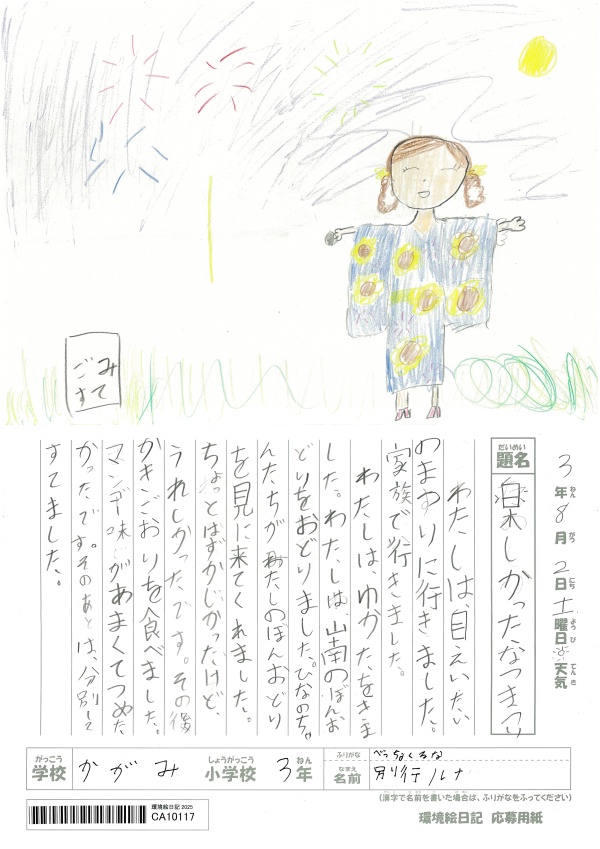 ごみ
すて
3年8月2日土曜日天気
ねん がつ にち ようび てんき
だいめい
題名
楽しかったなつまつり
わたしは、自えいたい
のまつりに行きました。
家族で行きました。
わたしは、ゆかたをきま
した。わたしは、山南のぼんお
どりをおどりました。ひなのち
んたちがわたしのぼんおどり
を見に来てくれました。
ちょっとはずかしかったけど、
うれしかったです。その後
かきごおりを食べました。
マンゴー味があまくてつめた
かったです。そのあとは、分別して
すてました。
がっこう
学校
かがみ
しょうがっこう
小学校
3年
ねん
ふりがな
なまえ
名前
別行ルナ
(漢字で名前を書いた場合は、ふりがなをふってください)
環境絵日記2025
CA10117
環境絵日記 応募用紙